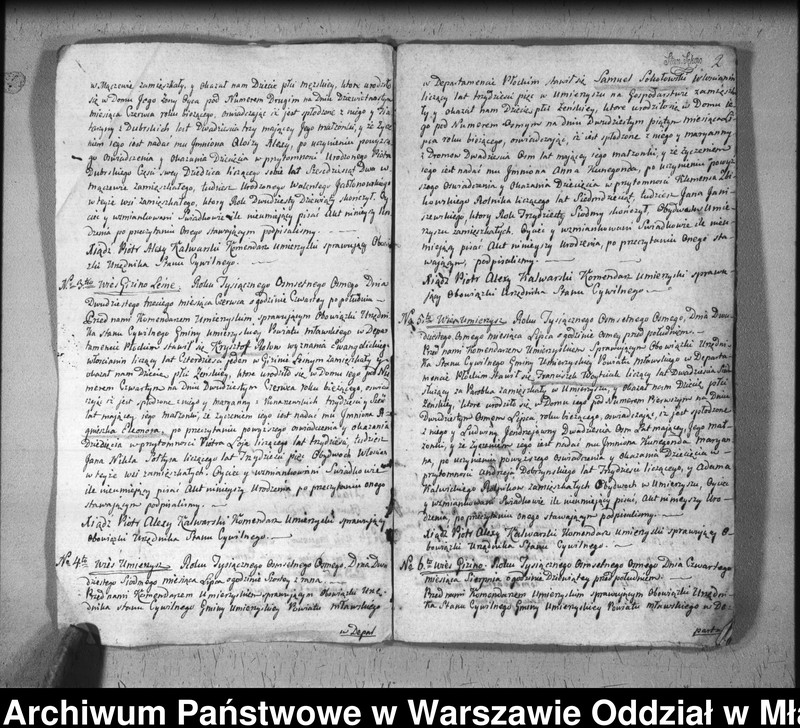 w Mączewie zamieszkały, y okazał nam Dziecie płci męzkiey, ktore urodziło
się w Domu Jego pod Numerem Drugim na Dniu Dziewiętnastym
miesiąca Czerwca roku bieżącego, oswiadczaiąc iż jest spłodzone z niego y Ka-
tarzyny z Dubrskich lat Dwadzieścia trzy maiącey Jego małżonki, y że życze-
niem iego iest nadać mu Jmniona Aloizy Alexy, po uczynieniu powyższe-
go Oswiadczenia y Okazania Dziecięcia w przytomności Urodzonego Piotra
Dubrskiego Części swey Dziedzica liczącey sobie lat Szescdziesiąt Dwa w
maczewie zamieszkałego, tudzież Urodzonego Walentego Jabłonowskiego
w teyże wsi zamieszkałego, ktory Rok Dwudziesty Dziewiąty skończył, Oy-
ciec y wzmiankowani Swiadkowie ile nieumieiący pisać Akt ninieyszy Uro-
dzenia po przeczytaniu Onego stawaiącym podpisalismy.
Xiądz Piotr Alexy Kalwarski Komendarz Umierzyski sprawuiący Obowią-
zki Urzędnika Stanu Cywilnego.
No 3tio Wieś Gzino Leśne. Roku Tysiącznego Osmsetnego Osmego Dnia
Dwudziestego trzeciego miesiąca Czerwca o godzinie Czwartey po południu
Przed nami Komendarzem Umierzyskim, sprawuiącym Obowiązki Urzędni-
ka Stanu Cywilnego Gminy Umierzyskiey, Powiatu mławskiego w Depar-
tamencie Płockim stawił się Krzysztof Rolow wyznania Ewangelickiego
włościanin liczący lat Czterdzieści jeden w Gzinie Leśnym zamieszkały y
okazał nam Dziecie płci Żeńskiey, ktore urodziło się w Domu iego pod Nu-
merem Czwartym na Dniu Dwudziestym Czerwca roku bieżącego, oswiad-
czaiąc iż jest spłodzone z niego y maryanny z trzydzieści y sześć
lat maiącey, iego małżonki, że życzeniem iego iest nadać mu Jmniona A-
gnieszka Eleonora, po przeczytaniu powyższego oswiadczenia y okazania
Dziecięcia w przytomności Piotra Leja liczącego lat trzydzieści, tudzież
Jana Nikla Rotyssa liczącego lat Trzydzieści pięc Obydwoch Włościan
w teyże wsi zamieszkałych. Oyciec y wzmiankowani Swiadkowie
ile nieumieiący pisać Akt ninieyszy Urodzenia po przeczytaniu onego
stawaiącym podpisalismy.
Xiądz Piotr Alexy Kalwarski Komendarz Umierzyski sprawuiący
Obowiązki Urzędnika Stanu Cywilnego.
No 4to Wieś Umierzysz Roku Tysiącznego Osmsetnego Osmego. Dnia Dwu-
dziestego Siodmego miesiąca Lipca o godzinie Szostey z rana
Przed nami Komendarzem Umierzyskim sprawuiącym Obowiązki Urzę-
dnika Stanu Cywilnego Gminy Umierzyskiey Powiatu mławskiego
w Depar.
2
w Departamencie Płockim stawił się Samuel Sokołowski Włościanin
liczący lat trzydzieści pięc w Umierzyszu na Gospodarstwie zamieszka-
ły y okazał nam Dziecie płci Żeńskiey, ktore urodziło się w Domu ie-
go pod Numerem Osmym na dniu Dwudziestym piątym miesiąca Li-
pca roku bieżącego, oswiadczaiąc, iż iest spłodzone z niego y maryanny
z Dwadzieścia Osm lat maiącey iego małżonki, y że życzeniem
iego iest nadać mu Jmniona Anna Kunegunda, po uczynieniu powyż-
szego Oswiadczenia y Okazania Dziecięcia w przytomności Klemensa
Rolnika liczącego lat Siedmdziesiąt, tudzież Jana Jani-
szewskiego, ktory Rok Trzydziesty Siodmy skończył, Obydwoch w Umie-
rzyszu zamieszkałych. Oyciec y wzmiankowani Swiadkowie ile nieu-
mieiący pisać Akt ninieyszy Urodzenia, po przeczytaniu Onego sta-
waiącym, podpisalismy.
Xiądz Piotr Alexy Kalwarski Komendarz Umierzyski sprawu-
iący Obowiązki Urzędnika Stanu Cywilnego.
No 5to Wieś Umierzysz Roku Tysiącznego Osmsetnego Osmego, Dnia Dwu-
dziestego Osmego miesiąca Lipca o godzinie Osmey przed południem.
Przed nami Komendarzem Umierzyskim Sprawuiącym Obowiązki Urzędni-
ka Stanu Cywilnego Gminy Umierzyskiey Powiatu mławskiego w Departa-
mencie Płockim stawił się Franciszek liczący lat Dwadzieścia
Służący za Parobka zamieszkały w Umierzyszu, y okazał nam Dziecie płci
Żeńskiey, ktore urodziło się w Domu iego pod Numerem Pierwszym na Dniu
Dwudziestym Osmym Lipca roku bieżącego, oswiadczaiąc, iż iest spłodzone
z niego y Ludwiki Dwadzieścia Osm lat maiącey, Jego mał-
żonki, y że życzeniem iego iest nadać mu Jmniona Kunegunda maryan-
na, po uczynieniu powyższego oswiadczenia y Okazania Dziecięcia w
przytomności Andrzeja Dobrzynskiego lat Trzydzieści liczącego, y Adama
Kalwickiego Rolnikow zamieszkałych Obydwoch w Umierzyszu. Oyciec
y wzmiankowani Swiadkowie ile nieumieiący pisać, Akt ninieyszy Uro-
dzenia, po przeczytaniu onego stawaiącym podpisalismy.
Xiądz Piotr Alexy Kalwarski Komendarz Umierzyski sprawuiący O-
bowiązki Urzędnika Stanu Cywilnego.
No 6to Wieś Gzino. Roku Tysiącznego Osmsetnego Osmego Dnia Czwartego
miesiąca Sierpnia o godzinie Dziewiątey przed południem.
Przed nami Komendarzem Umierzyskim sprawuiącym Obowiązki Urzędni-
ka Stanu Cywilnego Gminy Umierzyskiey Powiatu mławskiego w De-
parta
Archiwum Państwowe w Warszawie Oddział w Mła